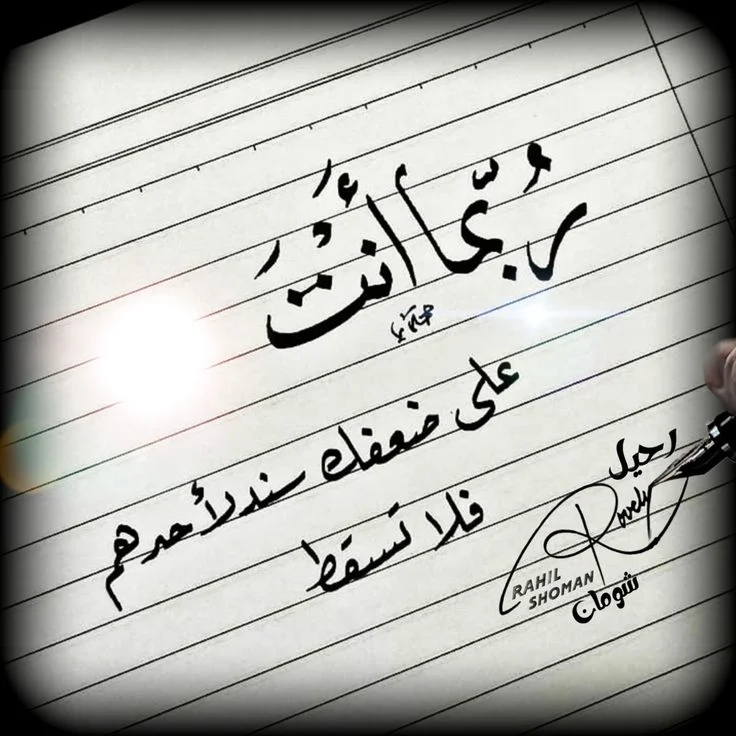 رُبّما أنْتَ
على ضعفك سند لأحدهم
فلا تسقط
رحيل
lovely
RAHIL
SHOMAN
شومان